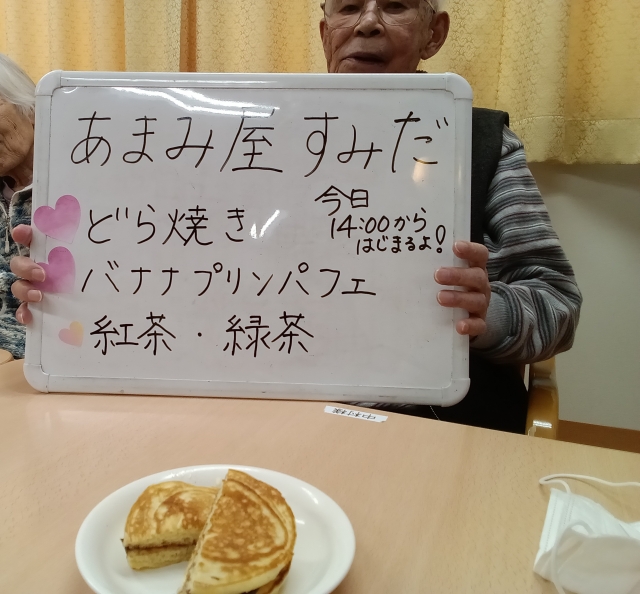 あまみ屋 すみだ
今日
14:00から
はじまるよ!
どら焼き
バナナプリンパフェ
紅茶・緑茶